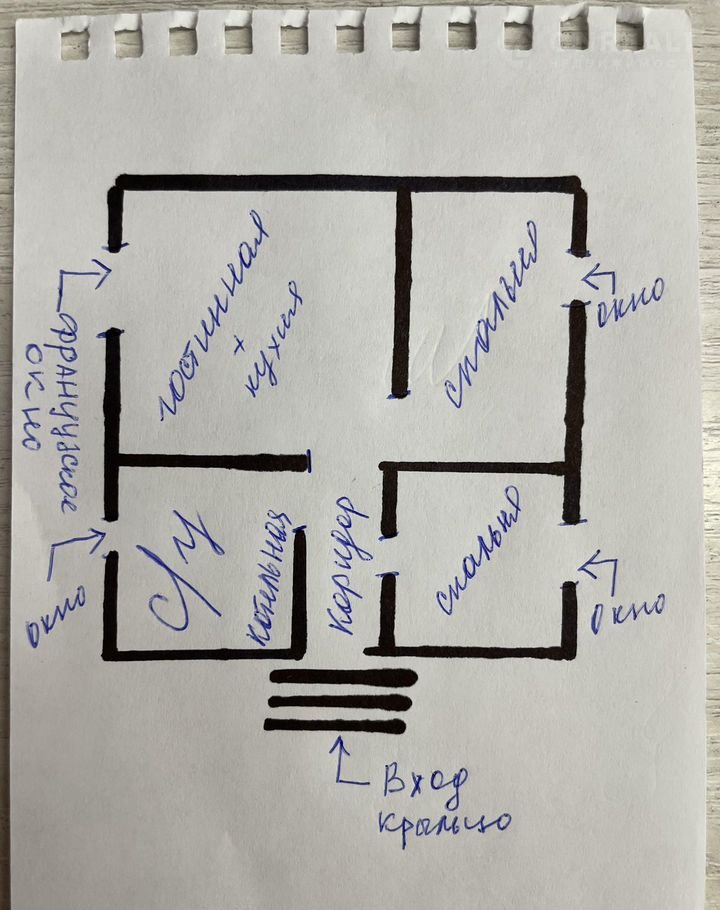 гостинная
+
кухня
спальня
окно
французское
окно
с/у
котельная
коридор
спальня
окно
окно
Вход
крыльцо